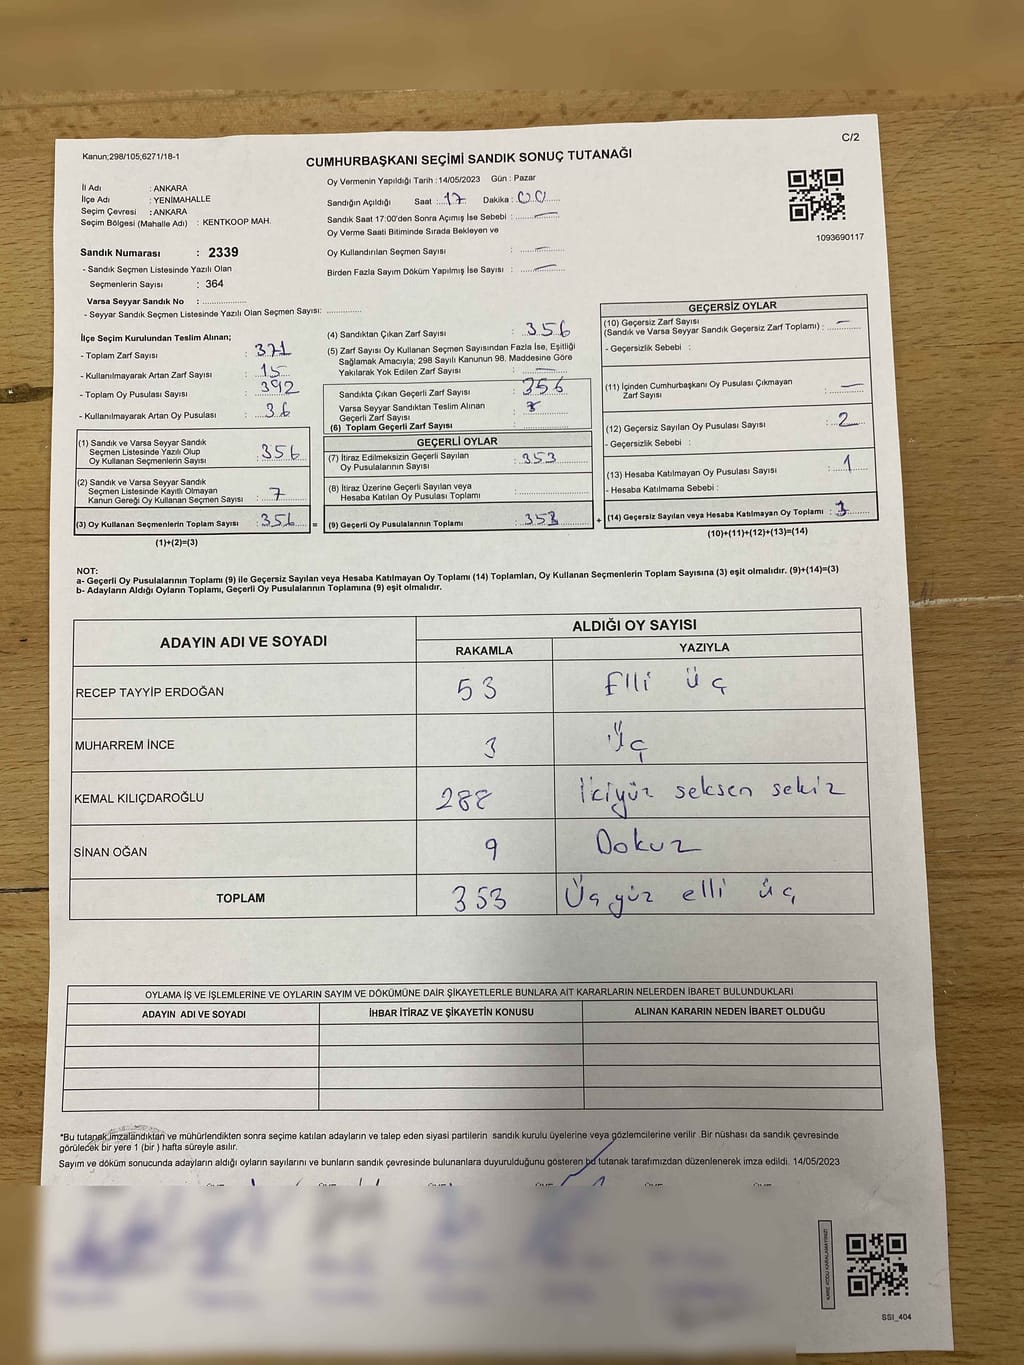 C/2
Kanun;298/105,6271/18-1
CUMHURBAŞKANI SEÇİMİ SANDIK SONUÇ TUTANAĞI
İl Adı : ANKARA
İlçe Adı : YENİMAHALLE
Seçim Çevresi : ANKARA
Seçim Bölgesi (Mahalle Adı) : KENTKOOP MAH.
Sandık Numarası : 2339
- Sandık Seçmen Listesinde Yazılı Olan
Seçmenlerin Sayısı : 364
Varsa Seyyar Sandık No :
- Seyyar Sandık Seçmen Listesinde Yazılı Olan Seçmen Sayısı:
Oy Vermenin Yapıldığı Tarih :14/05/2023 Gün : Pazar
Sandığın Açıldığı Saat : 17 Dakika : 00
Sandık Saat 17:00'den Sonra Açımış İse Sebebi : —
Oy Verme Saati Bitiminde Sırada Bekleyen ve
Oy Kullandırılan Seçmen Sayısı : —
Birden Fazla Sayım Döküm Yapılmış İse Sayısı : —
1093690117
İlçe Seçim Kurulundan Teslim Alınan;
- Toplam Zarf Sayısı : 371
- Kullanılmayarak Artan Zarf Sayısı : 15
- Toplam Oy Pusulası Sayısı : 392
- Kullanılmayarak Artan Oy Pusulası : 36
(1) Sandık ve Varsa Seyyar Sandık
Seçmen Listesinde Yazılı Olup
Oy Kullanan Seçmenlerin Sayısı : 356
(2) Sandık ve Varsa Seyyar Sandık
Seçmen Listesinde Kayıtlı Olmayan
Kanun Gereği Oy Kullanan Seçmen Sayısı : 7
(3) Oy Kullanan Seçmenlerin Toplam Sayısı : 356 =
(1)+(2)=(3)
(4) Sandıktan Çıkan Zarf Sayısı : 356
(5) Zarf Sayısı Oy Kullanan Seçmen Sayısından Fazla İse, Eşitliği
Sağlamak Amacıyla; 298 Sayılı Kanunun 98. Maddesine Göre
Yakılarak Yok Edilen Zarf Sayısı : —
Sandıkta Çıkan Geçerli Zarf Sayısı : 356
Varsa Seyyar Sandıktan Teslim Alınan
Geçerli Zarf Sayısı :
(6) Toplam Geçerli Zarf Sayısı :
GEÇERLİ OYLAR
(7) İtiraz Edilmeksizin Geçerli Sayılan
Oy Pusulalarının Sayısı : 353
(8) İtiraz Üzerine Geçerli Sayılan veya
Hesaba Katılan Oy Pusulası Toplamı :
(9) Geçerli Oy Pusulalarının Toplamı : 353 +
GEÇERSİZ OYLAR
(10) Geçersiz Zarf Sayısı
(Sandık ve Varsa Seyyar Sandık Geçersiz Zarf Toplamı) : —
- Geçersizlik Sebebi :
(11) İçinden Cumhurbaşkanı Oy Pusulası Çıkmayan
Zarf Sayısı : —
(12) Geçersiz Sayılan Oy Pusulası Sayısı : 2
- Geçersizlik Sebebi :
(13) Hesaba Katılmayan Oy Pusulası Sayısı : 1
- Hesaba Katılmama Sebebi :
(14) Geçersiz Sayılan veya Hesaba Katılmayan Oy Toplamı : 3
(10)+(11)+(12)+(13)=(14)
NOT:
a- Geçerli Oy Pusulalarının Toplamı (9) ile Geçersiz Sayılan veya Hesaba Katılmayan Oy Toplamı (14) Toplamları, Oy Kullanan Seçmenlerin Toplam Sayısına (3) eşit olmalıdır. (9)+(14)=(3)
b- Adayların Aldığı Oyların Toplamı, Geçerli Oy Pusulalarının Toplamına (9) eşit olmalıdır.
ADAYIN ADI VE SOYADI ALDIĞI OY SAYISI
RAKAMLA YAZIYLA
RECEP TAYYİP ERDOĞAN 53 Elli üç
MUHARREM İNCE 3 Üç
KEMAL KILIÇDAROĞLU 288 İkiyüz seksen sekiz
SİNAN OĞAN 9 Dokuz
TOPLAM 353 Üçyüz elli üç
OYLAMA İŞ VE İŞLEMLERİNE VE OYLARIN SAYIM VE DÖKÜMÜNE DAİR ŞİKAYETLERLE BUNLARA AİT KARARLARIN NELERDEN İBARET BULUNDUKLARI
ADAYIN ADI VE SOYADI İHBAR İTİRAZ VE ŞİKAYETİN KONUSU ALINAN KARARIN NEDEN İBARET OLDUĞU
*Bu tutanak,imzalandıktan ve mühürlendikten sonra seçime katılan adayların ve talep eden siyasi partilerin sandık kurulu üyelerine veya gözlemcilerine verilir .Bir nüshası da sandık çevresinde
görülecek bir yere 1 (bir ) hafta süreyle asılır.
Sayım ve döküm sonucunda adayların aldığı oyların sayılarını ve bunların sandık çevresinde bulunanlara duyurulduğunu gösteren bu tutanak tarafımızdan düzenlenerek imza edildi. 14/05/2023
SSİ_404